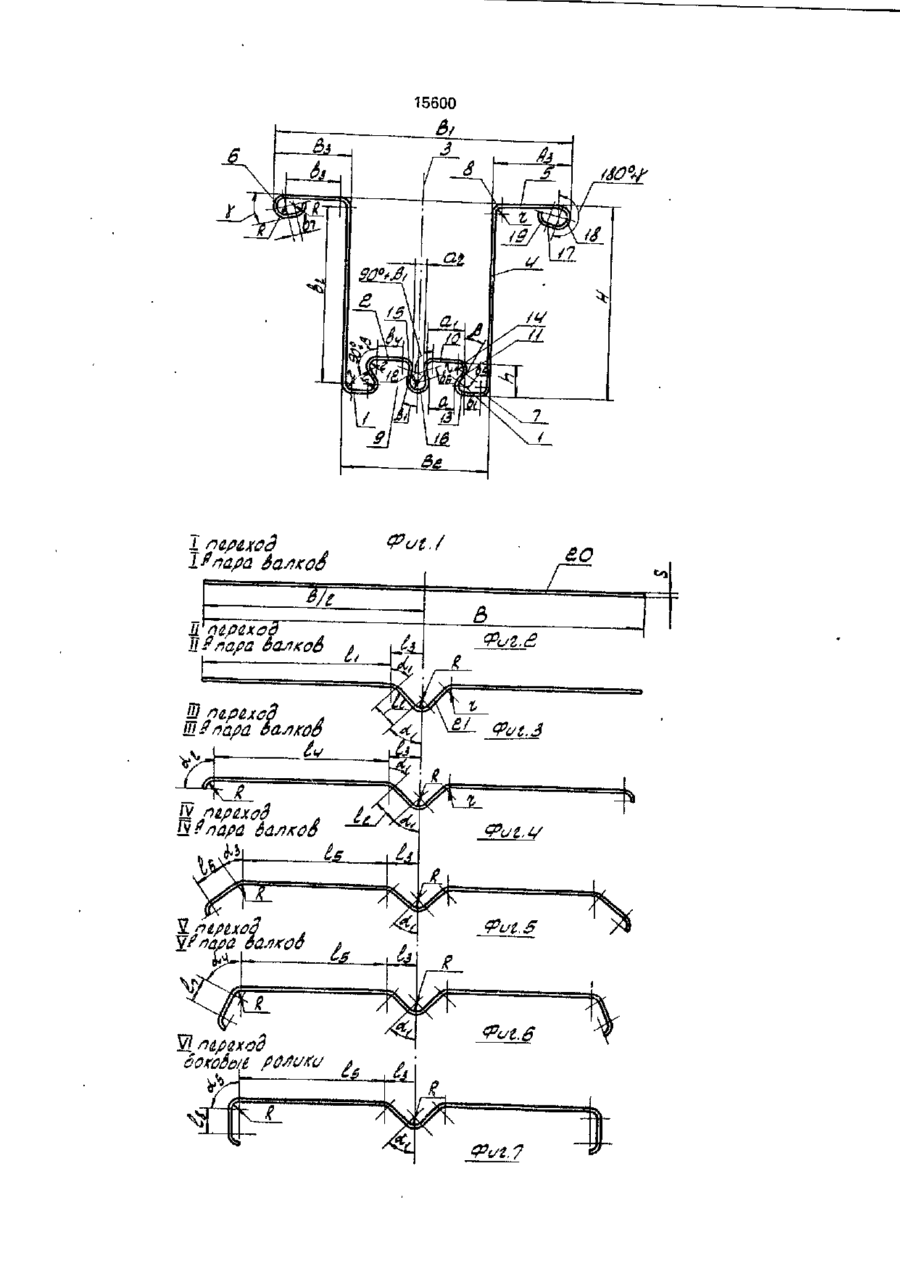 15600
B₁
B₃
3
A₃
6
b₃
8
5
180°-γ
γ
R
R
b₇
r
19
17
18
a₂
4
b₂
90°+β₁
H
2
15
a₁
β
14
b₄
10
11
90°+β
12
h
1
9
β₁
a
13
b₁
16
7
1
B₂
I переход
I-я пара валков
Фиг.1
20
S
B/2
B
II переход
II-я пара валков
Фиг.2
l₃
l₁
α₁
R
l₂
α₁
21
r
Фиг.3
III переход
III-я пара валков
α₂
l₄
l₃
α₁
R
R
l₂
α₁
r
Фиг.4
IV переход
IV-я пара валков
l₆
α₃
l₅
l₃
R
R
α₁
Фиг.5
V переход
V-я пара валков
α₄
l₅
l₃
R
l₇
R
α₁
Фиг.6
VI переход
боковые ролики
α₅
l₅
l₃
R
l₈
R
α₁
Фиг.7